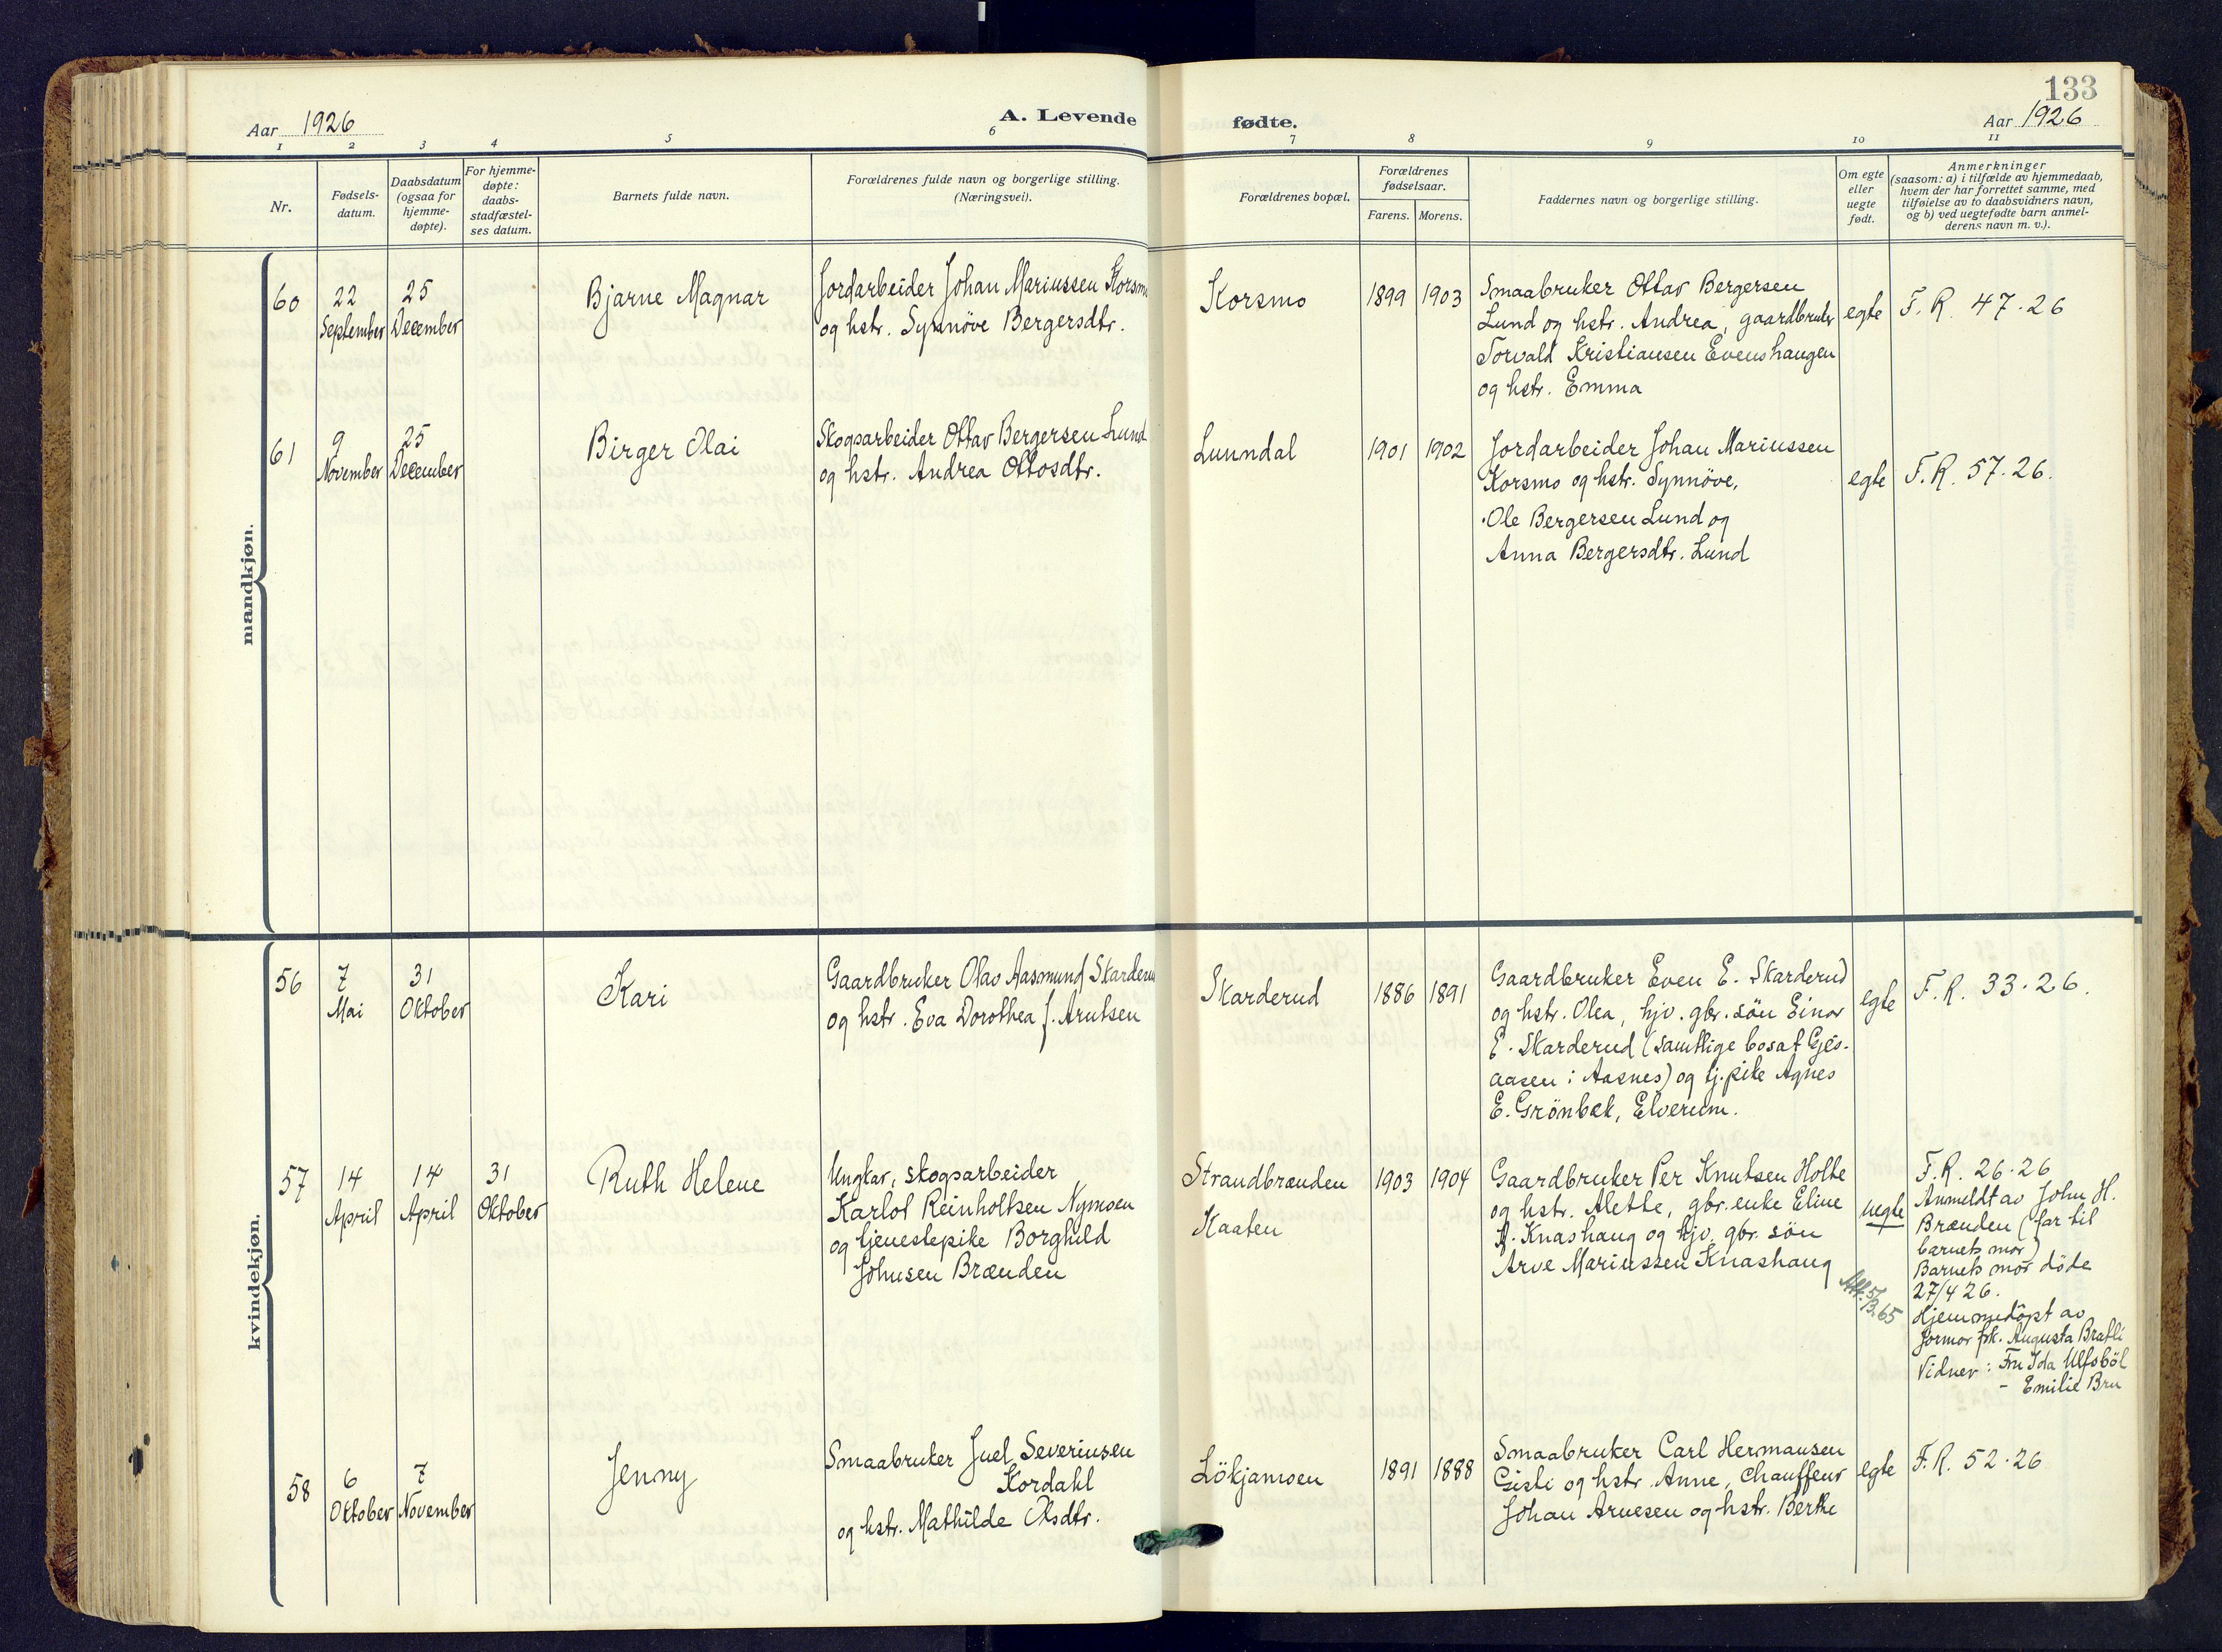 133
Aar 1926
A. Levende
fødte.
Aar 1926
1 2 3 4 5 6 7 8 9 10 11
Nr.
Fødsels-
datum.
Daabsdatum
(ogsaa for
hjemme-
døpte).
For hjemme-
døpte:
daabs-
stadfæstel-
ses datum.
Barnets fulde navn.
Forældrenes fulde navn og borgerlige stilling.
(Næringsvei).
Forældrenes bopæl.
Forældrenes
fødselsaar.
Farens. Morens.
Faddernes navn og borgerlige stilling.
Om egte
eller
uegte
født.
Anmerkninger
(saasom: a) i tilfælde av hjemmedaab,
hvem der har forrettet samme, med
tilføielse av to daabsvidners navn,
og b) ved uegtefødte barn anmel-
derens navn m. v.).
mandkjøn.
60
22
September
25
December
Bjarne Magnar
Jordarbeider Johan Mariussen Korsmo
og hstr. Synnöve Bergersdtr.
Korsmo
1899
1903
Smaabruker Ottar Bergersen
Lund og hstr. Andrea, gaardbruker
Torvald Kristiansen Evenshaugen
og hstr. Emma
egte
F. R. 47.26
61
9
November
25
December
Birger Olai
Skogsarbeider Ottar Bergersen Lund
og hstr. Andrea Ottosdtr.
Lunndal
1901
1902
Jordarbeider Johan Mariussen
Korsmo og hstr. Synnöve,
Ole Bergersen Lund og
Anna Bergersdtr. Lund
egte
F. R. 57.26.
kvindekjøn.
56
7
Mai
31
Oktober
Kari
Gaardbruker Olav Aasmund Skarderud
og hstr. Eva Dorothea f. Arntsen
Skarderud
1886
1891
Gaardbruker Even E. Skarderud
og hstr. Olea, hjv. gbr. sön Einar
E. Skarderud (samtlige bosat Gjes-
aasen i Aasnes) og tj.pike Agnes
E. Grönbæk, Elverum.
egte
F. R. 33.26.
57
14
April
14
April
31
Oktober
Ruth Helene
Ungkar, skogsarbeider
Karlot Reinholtsen Nymoen
og tjenestepike Borghild
Johnsen Brænden
Strandbrænden
Kaaten
1903
1904
Gaardbruker Per Knutsen Holte
og hstr. Alette, gbr. enke Eline
Knashaug og hjv. gbr. sön
Arve Mariussen Knashaug
uegte
Att. 5/3.65
F. R. 26.26
Anmeldt av John H.
Brænden (far til
barnets mor)
Barnets mor döde
27/4 26.
Hjemmedöpt av
jormor frk. Augusta Bratli
Vidner: Fru Ida Ulfsböl
- Emilie Bru
58
6
Oktober
7
November
Jenny
Smaabruker Juel Severinsen
Kordahl
og hstr. Mathilde Olsdtr.
Lökjamoen
1891
1888
Smaabruker Carl Hermansen
Gisti og hstr. Anne, Chauffeur
Johan Arnesen og hstr. Berthe
egte
F. R. 52.26